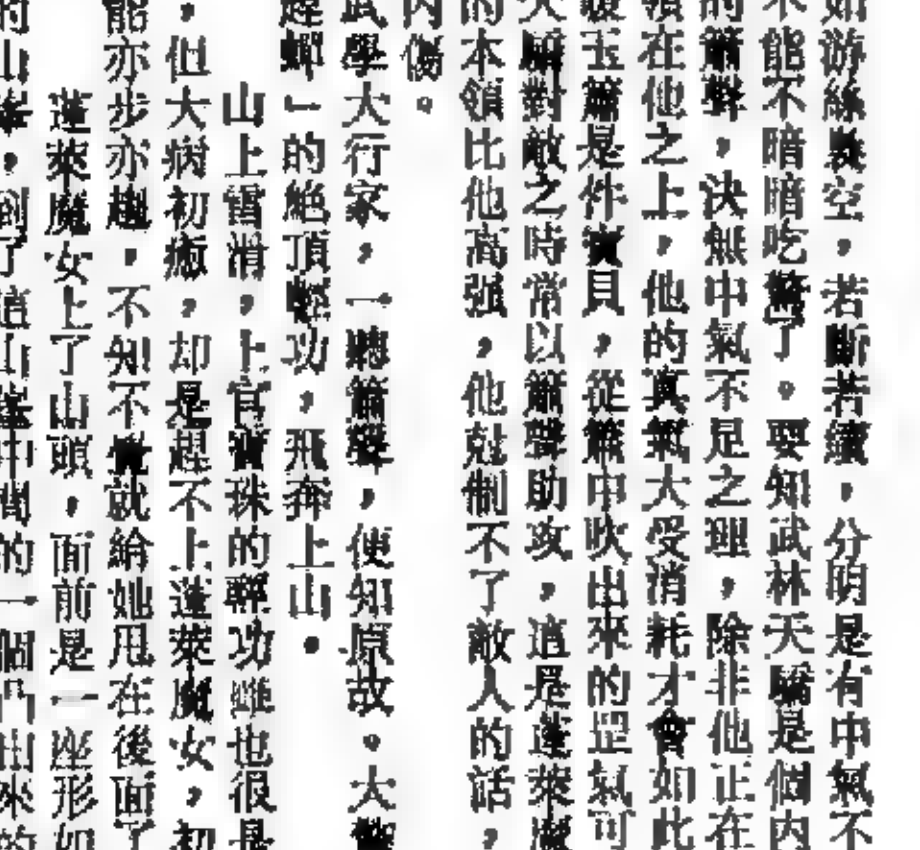 如游絲裊空，若斷若續，分明是有中氣不
不能不暗暗吃驚了。要知武林天驕是個內
的簫聲，決無中氣不足之理，除非他正在
領在他之上，他的真氣大受消耗才會如此
暖玉簫是件寶貝，從簫中吹出來的罡氣可
大願對敵之時常以簫聲助攻，這是蓬萊魔
的本領比他高强，他尅制不了敵人的話，
內傷。
武學大行家，一聽簫聲，便知原故。大驚
趕蟬」的絕頂輕功，飛奔上山。
山上雪滑，上官寶珠的輕功雖也很是
，但大病初癒，却是趕不上蓬萊魔女，初
能亦步亦趨，不知不覺就給她甩在後面了
蓬萊魔女上了山頭，面前是一座形如
的山峯，到了這山峯中間的一個凸出來的